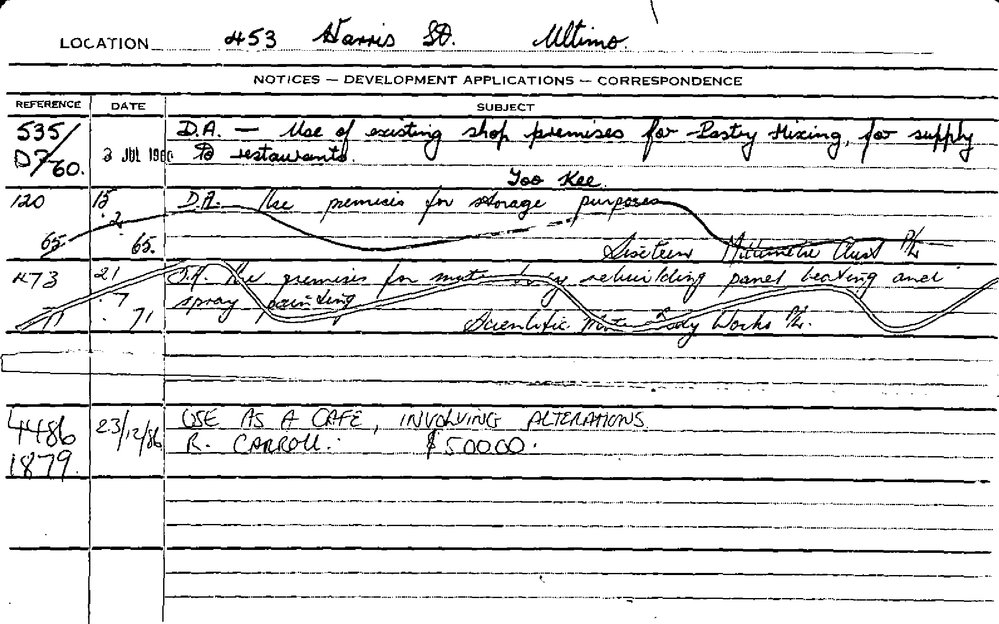 LOCATION 453 Harris St. Ultimo.
NOTICES — DEVELOPMENT APPLICATIONS — CORRESPONDENCE
REFERENCE DATE SUBJECT
535/ D.A. — Use of existing shop premises for Pastry Mixing, for supply
D7/60. JUL to restaurants.
Yoo Kee.
120 15 D.A. Use premises for storage purposes
2
65. 65. Sixteen Millimetre Aust P/L
473 21 D.A. Use premises for motor body rebuilding panel beating and
7 spray painting
71 71 Scientific Motor Body Works P/L.
4486 23/12/86 USE AS A CAFE, INVOLVING ALTERATIONS
1879. R. CARROLL. $5000.